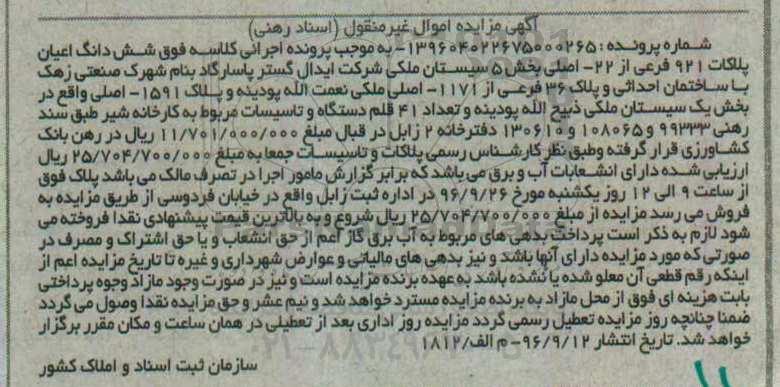 آگهی مزایده اموال غیرمنقول (اسناد رهنی)
شماره پرونده: ۱۳۹۶۰۴۰۲۲۶۷۵۰۰۰۲۶۵- به موجب پرونده اجرائی کلاسه فوق شش دانگ اعیان
پلاکات ۹۲۱ فرعی از ۲۲- اصلی بخش ۵ سیستان ملکی شرکت ایدآل گستر پاسارگاد بنام شهرک صنعتی زهک
با ساختمان احداثی و پلاک ۳۶ فرعی از ۱۱۷۱- اصلی ملکی نعمت الله پودینه و پلاک ۱۵۹۱- اصلی واقع در
بخش یک سیستان ملکی ذبیح الله پودینه و تعداد ۴۱ قلم دستگاه و تاسیسات مربوط به کارخانه شیر طبق سند
رهنی ۹۹۳۳۳ و ۱۰۸۰۶۵ و ۱۳۰۶۱۰ دفترخانه ۲ زابل در قبال مبلغ ۱۱/۷۰۱/۰۰۰/۰۰۰ ریال در رهن بانک
کشاورزی قرار گرفته وطبق نظر کارشناس رسمی پلاکات و تاسیسات جمعا به مبلغ ۲۵/۷۰۴/۷۰۰/۰۰۰ ریال
ارزیابی شده دارای انشعابات آب و برق می باشد که برابر گزارش مامور اجرا در تصرف مالک می باشد پلاک فوق
از ساعت ۹ الی ۱۲ روز یکشنبه مورخ ۹۶/۹/۲۶ در اداره ثبت زابل واقع در خیابان فردوسی از طریق مزایده به
فروش می رسد مزایده از مبلغ ۲۵/۷۰۴/۷۰۰/۰۰۰ ریال شروع و به بالاترین قیمت پیشنهادی نقدا فروخته می
شود لازم به ذکر است پرداخت بدهی های مربوط به آب برق گاز اعم از حق انشعاب و یا حق اشتراک و مصرف در
صورتی که مورد مزایده دارای آنها باشد و نیز بدهی های مالیاتی و عوارض شهرداری و غیره تا تاریخ مزایده اعم از
اینکه رقم قطعی آن معلو شده یا نشده باشد به عهده برنده مزایده است و نیز در صورت وجود مازاد وجوه پرداختی
بابت هزینه ای فوق از محل مازاد به برنده مزایده مسترد خواهد شد و نیم عشر و حق مزایده نقدا وصول می گردد
ضمنا چنانچه روز مزایده تعطیل رسمی گردد مزایده روز اداری بعد از تعطیلی در همان ساعت و مکان مقرر برگزار
خواهد شد. تاریخ انتشار ۹۶/۹/۱۲- م الف/۱۸۱۲
سازمان ثبت اسناد و املاک کشور
۰۲۱-۸۸۳۴۹